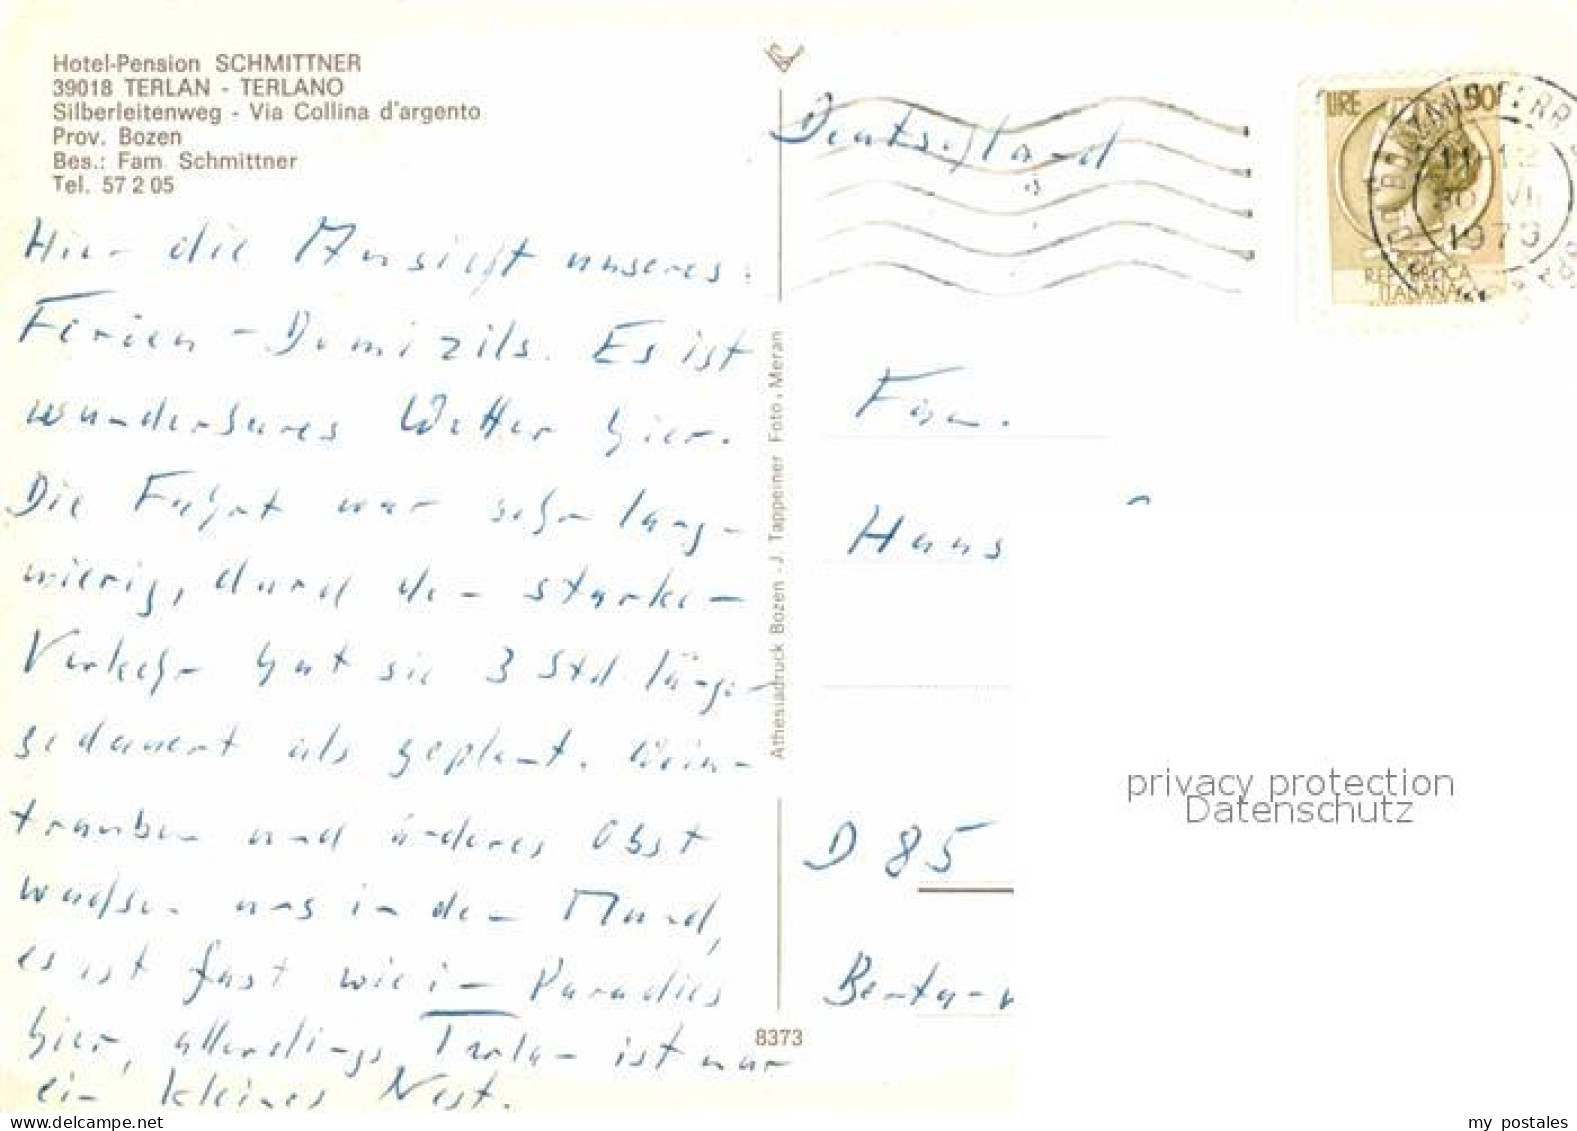 Hotel-Pension SCHMITTNER
39018 TERLAN - TERLANO
Silberleitenweg - Via Collina d'argento
Prov. Bozen
Bes.: Fam. Schmittner
Tel. 57 2 05
Hier die Ansicht unseres
Ferien-Domizils. Es ist
wunderbares Wetter hier.
Die Fahrt war sehr lang-
wierig, durch den starken
Verkehr hat sie 3 Std. länger
gedauert als geplant. Wein-
trauben und anderes Obst
wachsen uns in den Mund,
es ist fast wie im Paradies
hier, allerdings Terlan ist nur
ein kleines Nest.
8373
Athesiadruck Bozen - J. Tappeiner Foto, Meran
Deutschland
LIRE 90
REPUBBLICA
ITALIANA
11-12
30 VII
1973
Fam.
Hans
D 85
privacy protection
Datenschutz
my postales
www.delcampe.net